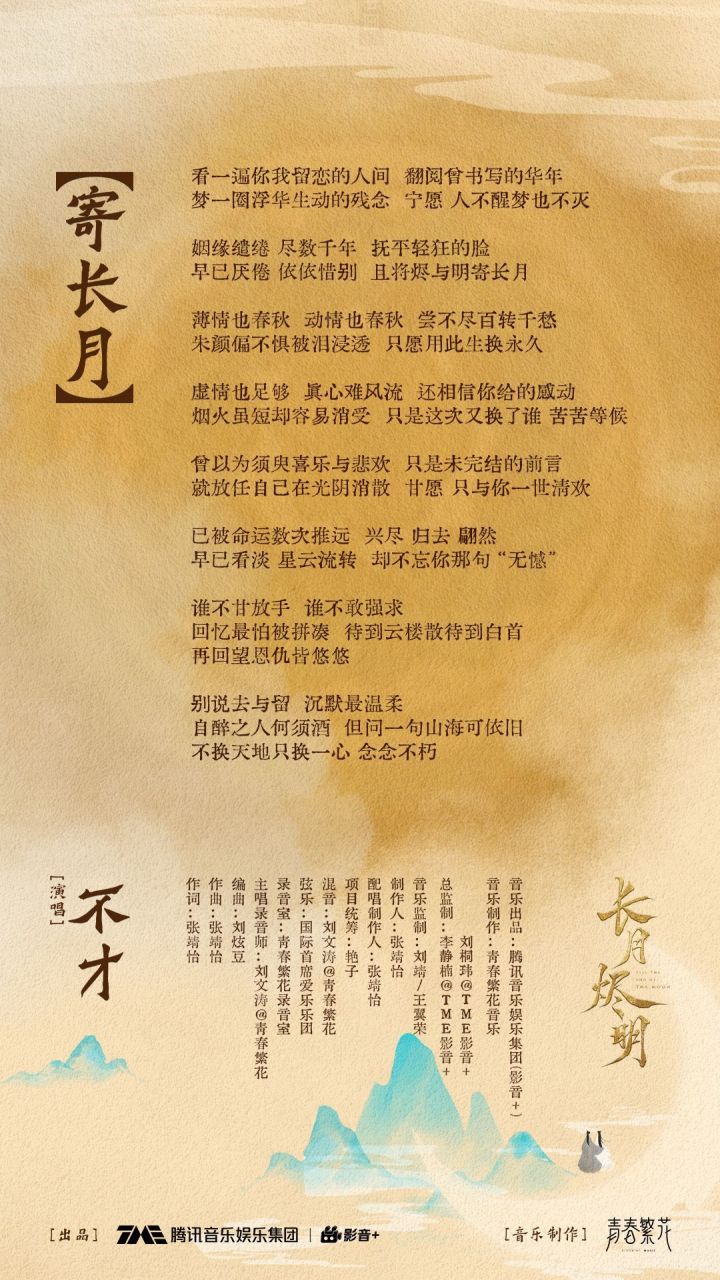 【寄长月】
看一遍你我留恋的人间 翻阅曾书写的华年
梦一圈浮华生动的残念 宁愿 人不醒梦也不灭
姻缘缱绻 尽数千年 抚平轻狂的脸
早已厌倦 依依惜别 且将烬与明寄长月
薄情也春秋 动情也春秋 尝不尽百转千愁
朱颜偏不惧被泪浸透 只愿用此生换永久
虚情也足够 真心难风流 还相信你给的感动
烟火虽短却容易消受 只是这次又换了谁 苦苦等候
曾以为须臾喜乐与悲欢 只是未完结的前言
就放任自己在光阴消散 甘愿 只与你一世清欢
已被命运数次推远 兴尽 归去 翩然
早已看淡 星云流转 却不忘你那句“无憾”
谁不甘放手 谁不敢强求
回忆最怕被拼凑 待到云楼散待到白首
再回望恩仇皆悠悠
别说去与留 沉默最温柔
自醉之人何须酒 但问一句山海可依旧
不换天地只换一心 念念不朽
[演唱]
不才
作词：张靖怡
作曲：张靖怡
编曲：刘炫豆
主唱录音师：刘文涛@青春繁花
录音室：青春繁花录音室
弦乐：国际首席爱乐乐团
混音：刘文涛@青春繁花
项目统筹：艳子
配唱制作人：张靖怡
制作人：张靖怡
音乐监制：刘靖/王翼荣
总监制：李静楠@TME影音+
刘桐玮@TME影音+
音乐制作：青春繁花音乐
音乐出品：腾讯音乐娱乐集团(影音+)
长月烬明
[出品]
TME 腾讯音乐娱乐集团 | 影音+
[音乐制作]
青春繁花